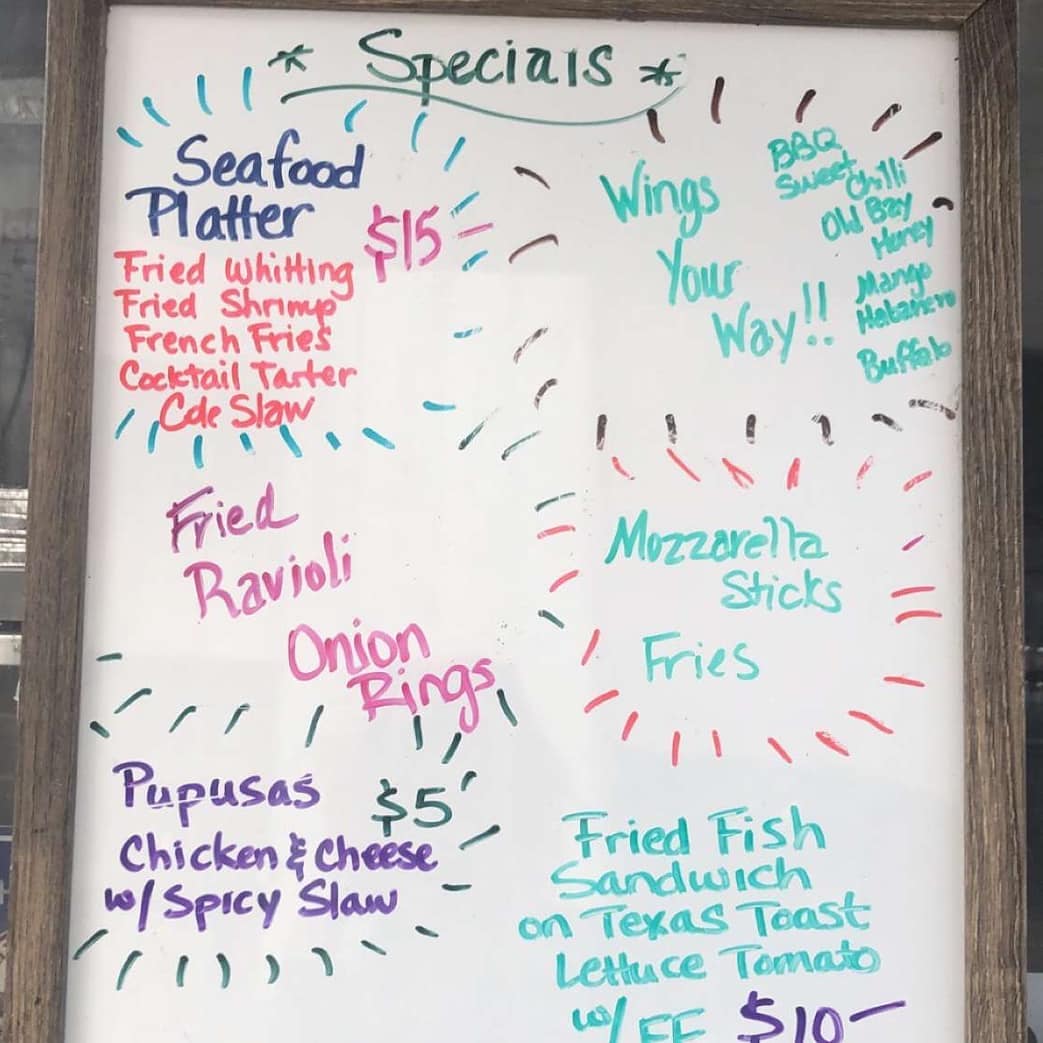 * Specials *
Seafood
Platter
$15
Fried Whitting
Fried Shrimp
French Fries
Cocktail Tarter
Cole Slaw
Wings
Your
Way!!
BBQ
Sweet Chilli
Old Bay
Honey
Mango
Habanero
Buffalo
Fried
Ravioli
Onion
Rings
Mozzarella
Sticks
Fries
Pupusas
$5
Chicken & Cheese
w/ Spicy Slaw
Fried Fish
Sandwich
on Texas Toast
Lettuce Tomato
w/ FF $10